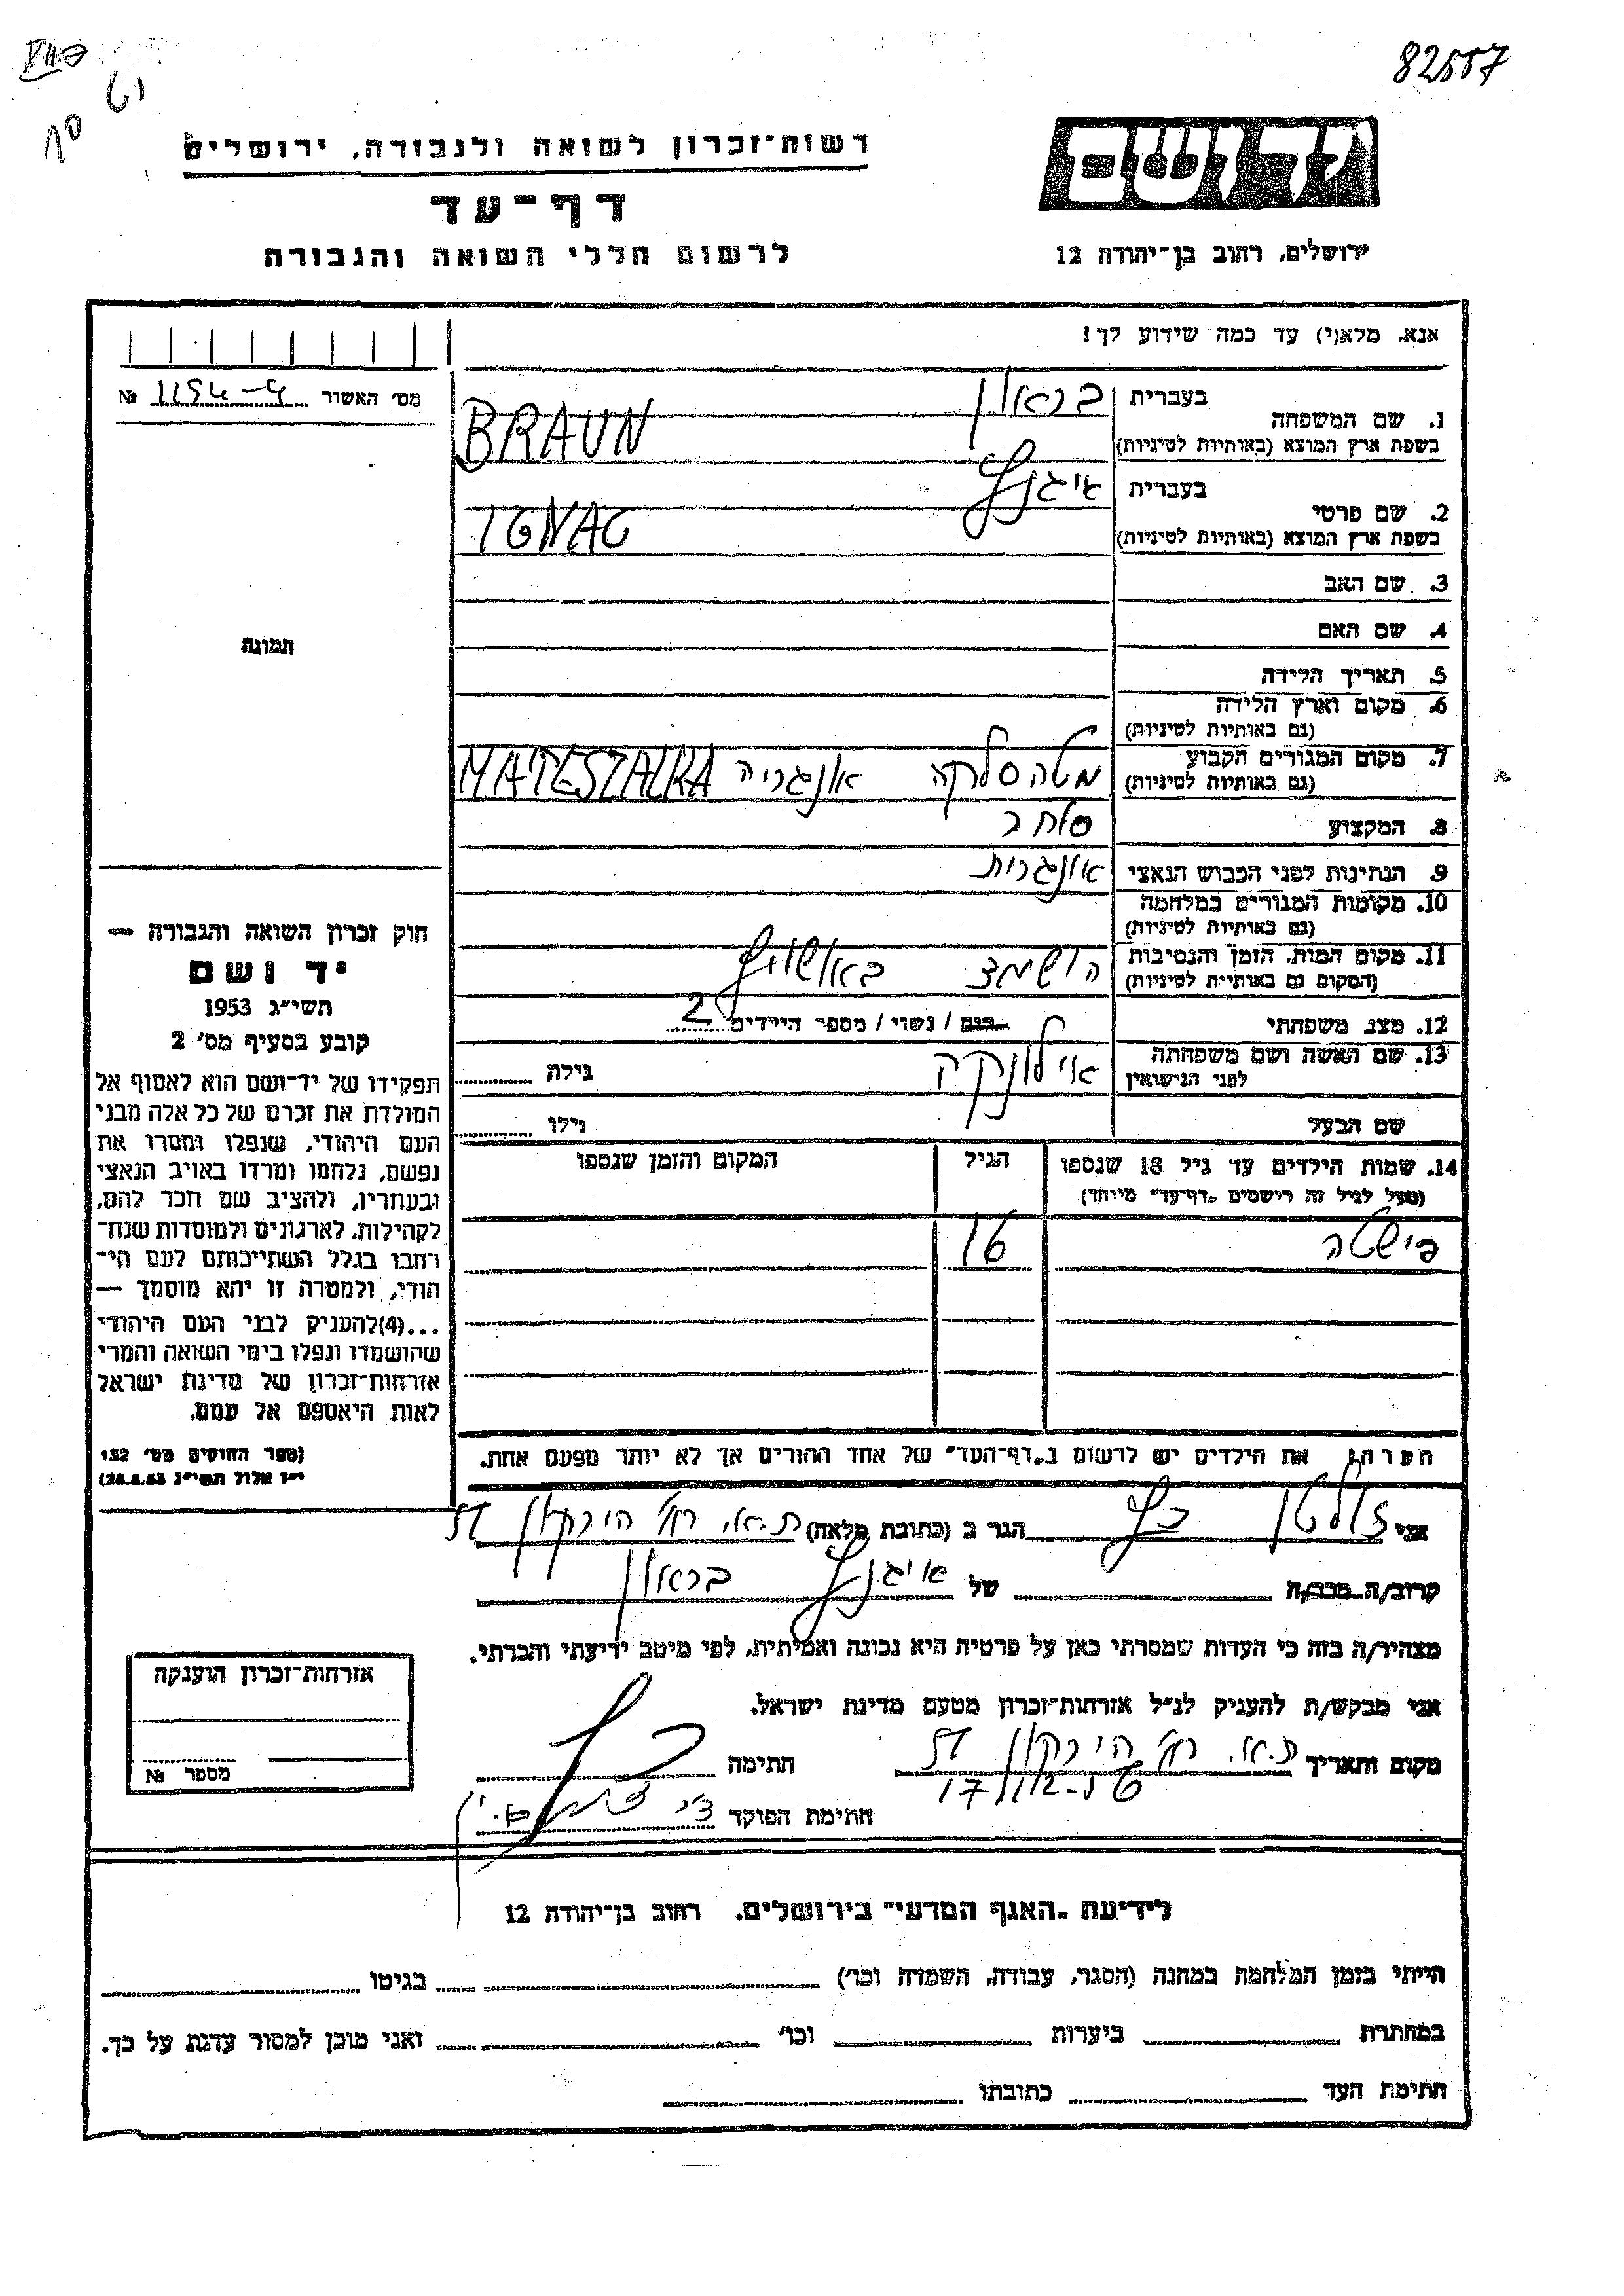 82557
רשות-זכרון לשואה ולגבורה, ירושלים
דף-עד
לרשום חללי השואה והגבורה
ירושלים, רחוב בן-יהודה 12
אנא, מלא(י) עד כמה שידוע לך!
מס׳ האשור 1154-4 №
בעברית בראון
1. שם המשפחה
בשפת ארץ המוצא (באותיות לטיניות) BRAUN
בעברית איגנץ
2. שם פרטי
בשפת ארץ המוצא (באותיות לטיניות) IGNAC
3. שם האב
4. שם האם
תמונה
5. תאריך הלידה
6. מקום וארץ הלידה
(גם באותיות לטיניות)
7. מקום המגורים הקבוע מטהסלקה אונגריה MATESZALKA
(גם באותיות לטיניות)
8. המקצוע סוחר
9. הנתינות לפני הכבוש הנאצי אונגרית
10. מקומות המגורים במלחמה
(גם באותיות לטיניות)
11. מקום המות, הזמן והנסיבות הושמד באושויץ
(המקום גם באותיות לטיניות)
12. מצב משפחתי רווק / נשוי / מספר הילדים 2
13. שם האשה ושם משפחתה אילונקה גילה
לפני הנישואין
שם הבעל גילו
14. שמות הילדים עד גיל 18 שנספו הגיל המקום והזמן שנספו
(מעל לגיל זה רושמים „דף-עד״ מיוחד)
פישטה 16
הערה: את הילדים יש לרשום ב„דף-העד״ של אחד ההורים אך לא יותר מפעם אחת.
חוק זכרון השואה והגבורה —
יד ושם
תשי״ג 1953
קובע בסעיף מס׳ 2
תפקידו של יד-ושם הוא לאסוף אל
המולדת את זכרם של כל אלה מבני
העם היהודי, שנפלו ומסרו את
נפשם, נלחמו ומרדו באויב הנאצי
ובעוזריו, ולהציב שם וזכר להם,
לקהילות, לארגונים ולמוסדות שנח-
רחבו בגלל השתייכותם לעם הי-
הודי, ולמטרה זו יהא מוסמך —
...(4)להעניק לבני העם היהודי
שהושמדו ונפלו בימי השואה והמרי
אזרחות-זכרון של מדינת ישראל
לאות היאספם אל עמם.
(ספר החוקים מס׳ 132
י״ז אלול תשי״ג 28.8.53)
אני זולטן כץ הגר ב (כתובת מלאה) ת.א. רח׳ הירקון 57
קרוב/ה מכר/ה של איגנץ בראון
מצהיר/ה בזה כי העדות שמסרתי כאן על פרטיה היא נכונה ואמיתית, לפי מיטב ידיעתי והכרתי.
אני מבקש/ת להעניק לנ״ל אזרחות-זכרון מטעם מדינת ישראל.
מקום ותאריך ת.א. רח׳ הירקון 57 חתימה
17/12-56
חתימת הפוקד
אזרחות-זכרון הוענקה
מספר №
לידיעת „האגף המדעי״ בירושלים, רחוב בן-יהודה 12
הייתי בזמן המלחמה במחנה (הסגר, עבודה, השמדה וכו׳) בגיטו
במחתרת ביערות וכו׳ ואני מוכן למסור עדות על כך.
חתימת העד כתובתו